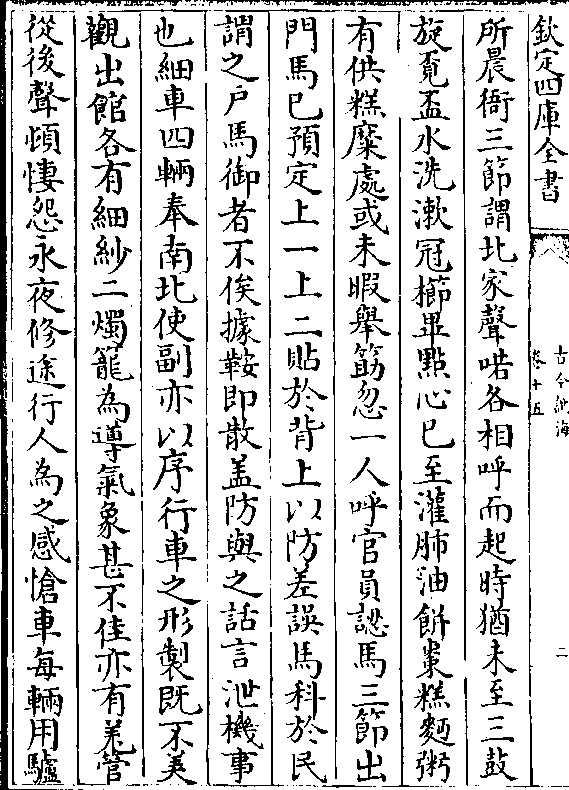 欽定四庫全書
古今說海
卷十五
二
所晨衙三節謂北家聲喏各相呼而起時猶未至三鼓
旋覓盃水洗漱冠櫛畢點心已至灌肺油餅棗糕麵粥
有供糕糜處或未暇舉筯忽一人呼官員認馬三節出
門馬已預定上一上二貼於背上以防差誤馬科於民
謂之戶馬御者不俟據鞍即散盖防與之話言泄機事
也細車四輛奉南北使副亦以序行車之形製既不美
觀出館各有細紗二燭籠為導氣象甚不佳亦有羌管
從後聲頓悽怨永夜修途行人為之感愴車每輛用驢